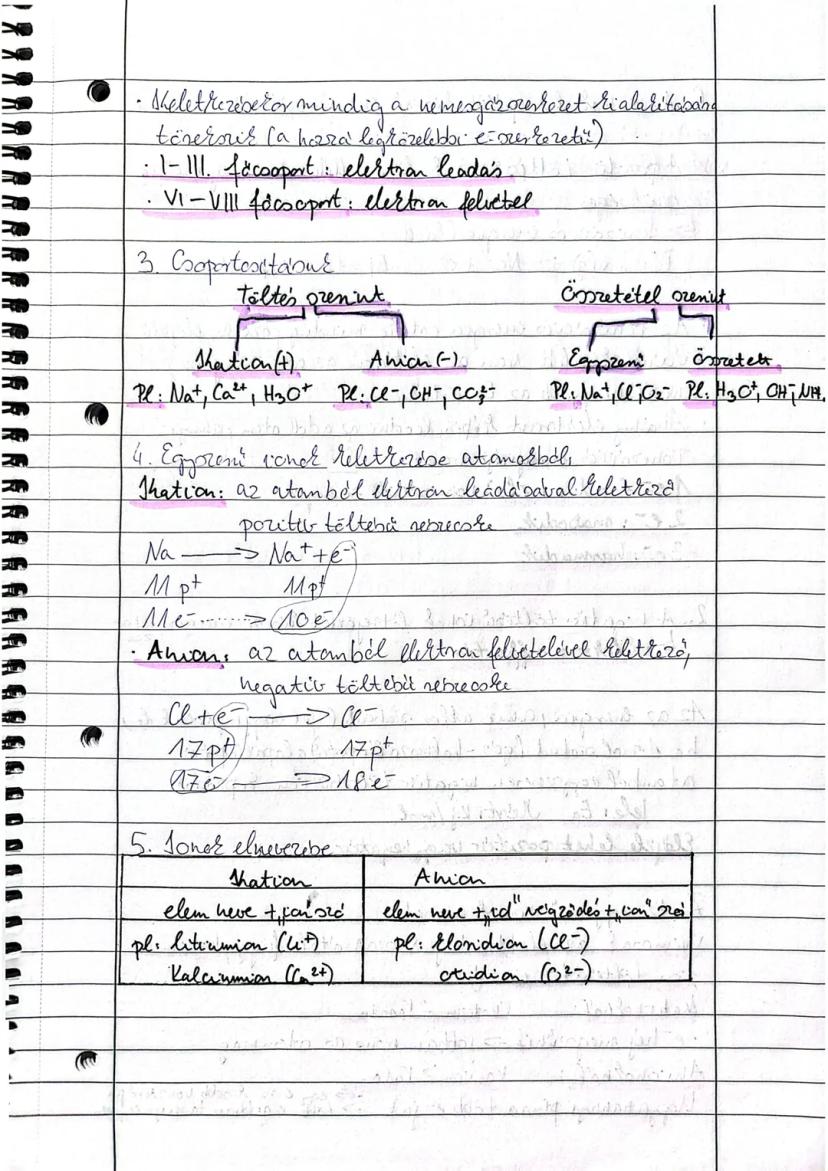 · Keletkezésekor mindig a nemesgázszerkezet kialakítására
törekszik (a hozzá legközelebbi e⁻szerkezetű)
· I–III. főcsoport: elektron leadás
· VI–VIII főcsoport: elektron felvétel
3. Csoportosításuk
Töltés szerint Összetétel szerint
Kation (+) Anion (-) Egyszerű Összetett
Pl: Na⁺, Ca²⁺, H₃O⁺ Pl: Cl⁻, OH⁻, CO₃²⁻ Pl: Na⁺, Cl⁻, O²⁻ Pl: H₃O⁺, OH⁻, NH₄
4. Egyszerű ionok keletkezése atomokból
Kation: az atomból elektron leadásával keletkező
pozitív töltésű részecske
Na → Na⁺ + e⁻
11 p⁺ 11 p⁺
11 e⁻ → 10 e⁻
· Anion: az atomból elektron felvételével keletkező,
negatív töltésű részecske
Cl + e⁻ → Cl⁻
17 p⁺ 17 p⁺
17 e⁻ → 18 e⁻
5. Ionok elnevezése
Kation Anion
elem neve + „ion" szó elem neve + „id" végződés + „ion" szó
pl: lítiumion (Li⁺) pl: kloridion (Cl⁻)
Kalciumion (Ca²⁺) oxidion (O²⁻)